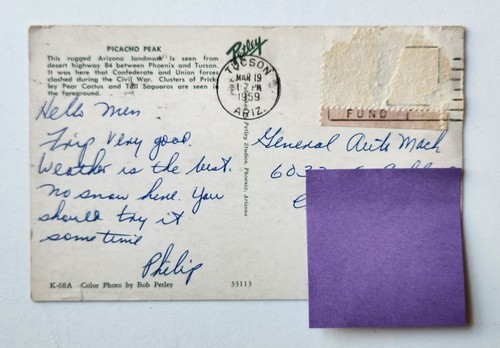 PICACHO PEAK
This rugged Arizona landmark is seen from
desert highway 84 between Phoenix and Tucson.
It was here that Confederate and Union forces
clashed during the Civil War. Clusters of Prick-
ley Pear Cactus and Tall Saguaros are seen in
the foreground.
Petley
TUCSON
MAR 19
12 PM
1959
ARIZ.
FUND
Hello Men
Trip very good.
Weather is the best.
No snow here. You
should try it
sometime
Philip
General Auto Mach
Petley Studios, Phoenix, Arizona
K-68A Color Photo by Bob Petley
33113